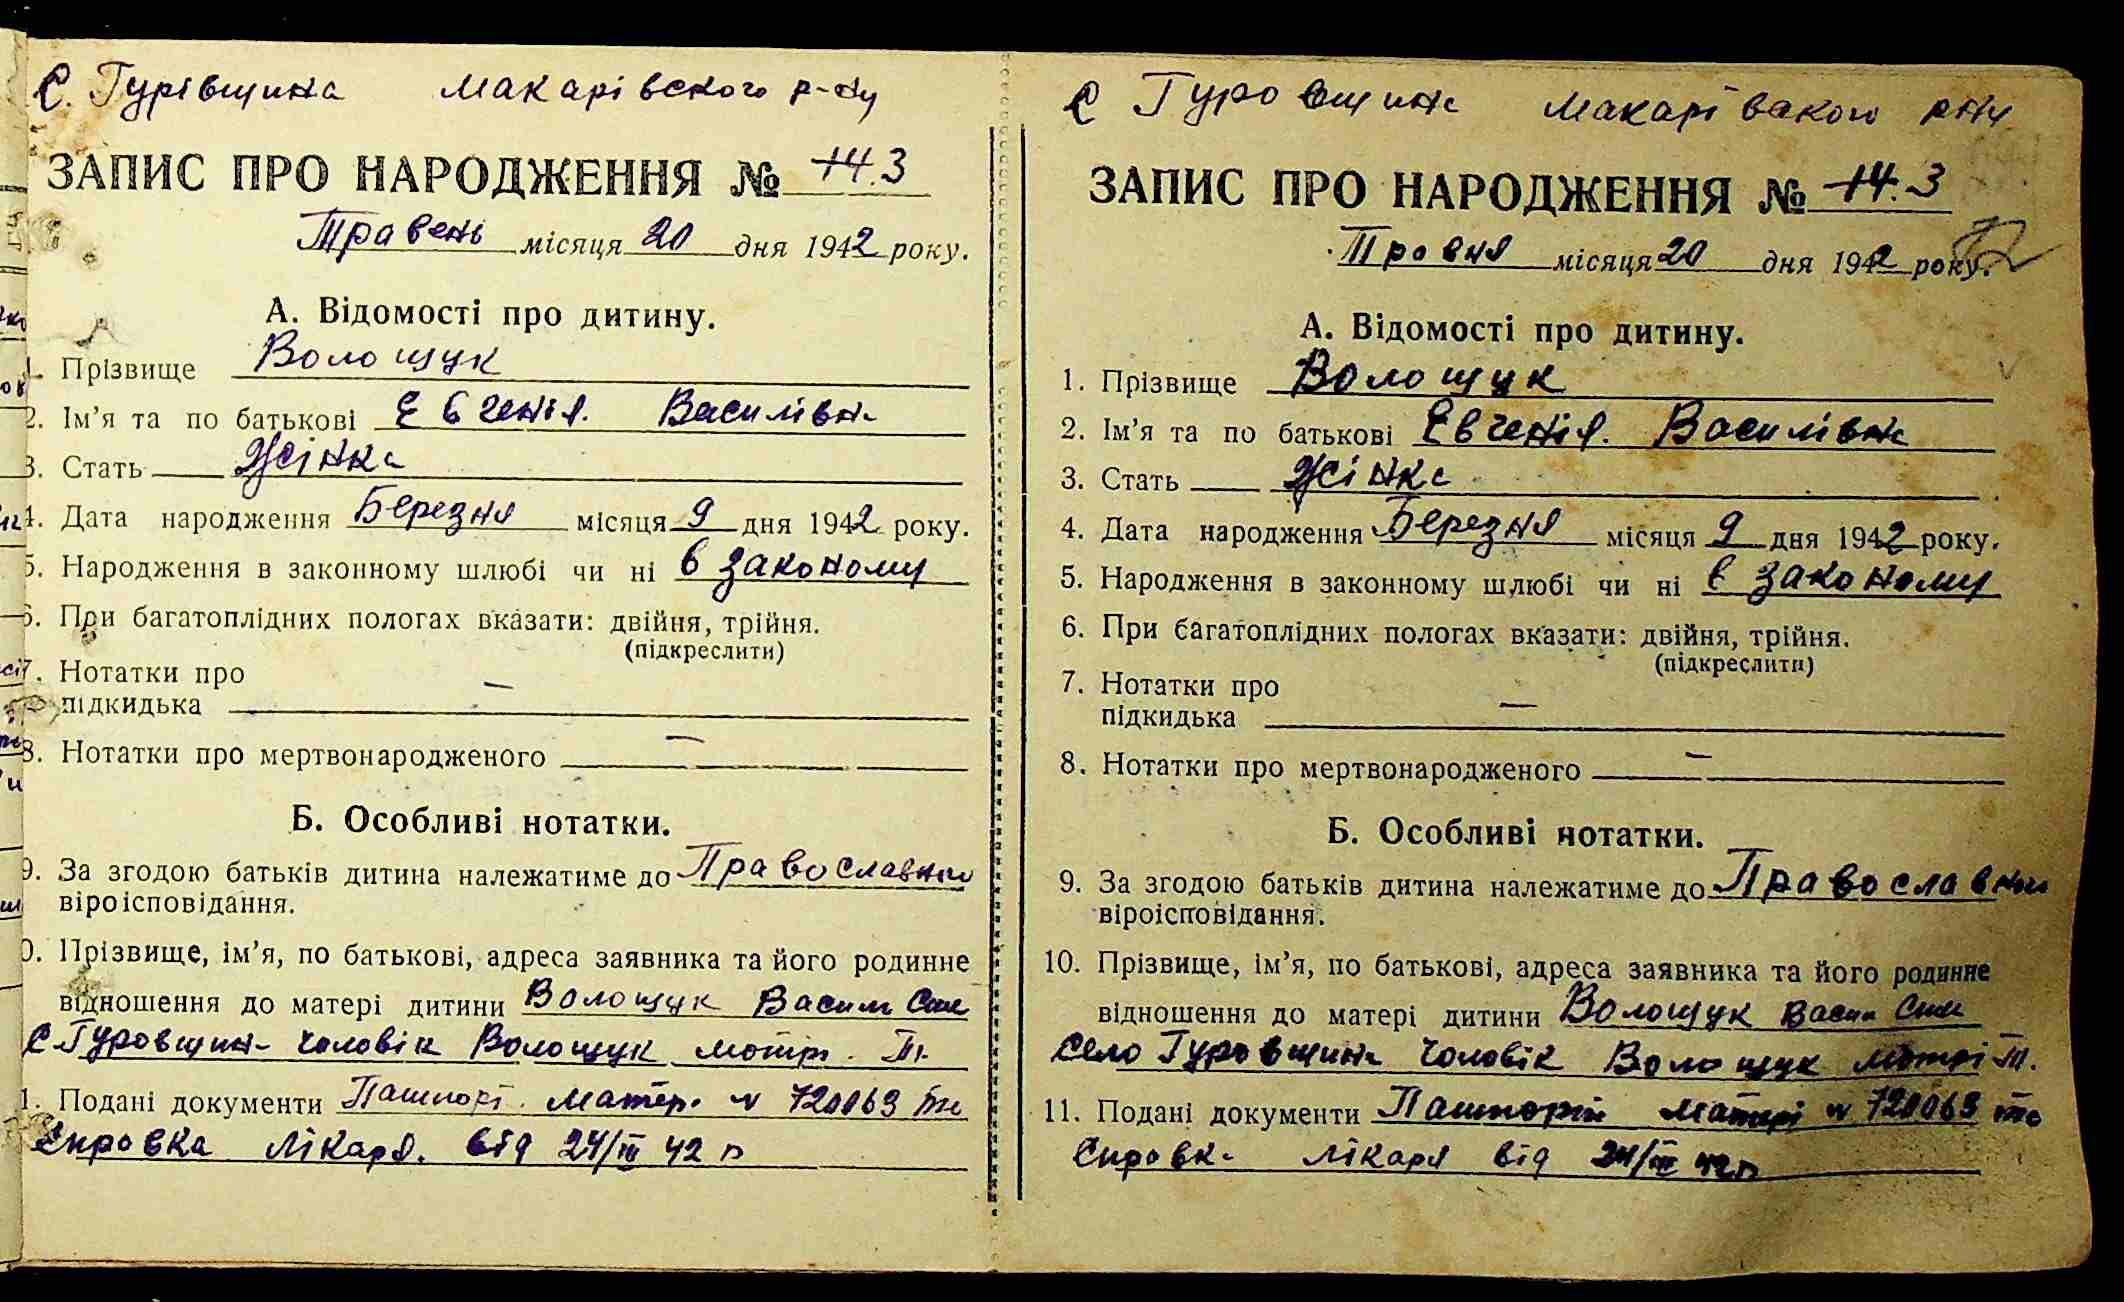 с. Гурівщина Макарівского р-ну
ЗАПИС ПРО НАРОДЖЕННЯ № 14.3
Травень місяця 20 дня 1942 року.
А. Відомості про дитину.
1. Прізвище Волощук
2. Ім'я та по батькові Євгенія. Василівн
3. Стать Жінка
4. Дата народження Березня місяця 9 дня 1942 року.
5. Народження в законному шлюбі чи ні в законому
6. При багатоплідних пологах вказати: двійня, трійня.
(підкреслити)
7. Нотатки про
підкидька —
8. Нотатки про мертвонародженого —
Б. Особливі нотатки.
9. За згодою батьків дитина належатиме до Православного
віроісповідання.
0. Прізвище, ім'я, по батькові, адреса заявника та його родинне
відношення до матері дитини Волощук Васил
с Гуровщин- чоловік Волощук мотрі
1. Подані документи Пашпорт матері № 720069 та
Справка лікаря. від 24/III 42 р
с Гуровщина Макарівского рну
ЗАПИС ПРО НАРОДЖЕННЯ № 14.3
Травня місяця 20 дня 1942 року.
А. Відомості про дитину.
1. Прізвище Волощук
2. Ім'я та по батькові Євгенія. Василівна
3. Стать Жінка
4. Дата народження Березня місяця 9 дня 1942 року.
5. Народження в законному шлюбі чи ні в законому
6. При багатоплідних пологах вказати: двійня, трійня.
(підкреслити)
7. Нотатки про
підкидька —
8. Нотатки про мертвонародженого —
Б. Особливі нотатки.
9. За згодою батьків дитина належатиме до Православного
віроісповідання.
10. Прізвище, ім'я, по батькові, адреса заявника та його родинне
відношення до матері дитини Волощук Васил
Село Гуровщина чоловік Волощук мотрі
11. Подані документи Пашпорт матері № 720069 та
Справк- лікаря від 24/III 42 р